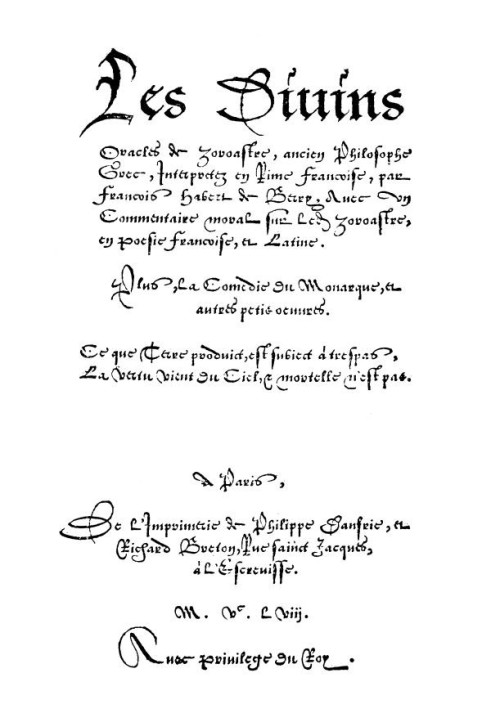 Les Diuins
Oracles de Zoroastre, ancien Philosophe
Grec, Interpretez en Rime Francoise, par
Francois Habert de Berry. Auec vn
Commentaire moral sur ledit Zoroastre,
en poesie Francoise, et Latine.
Plus, La Comedie du Monarque, et
autres petis oeuures.
Ce que Terre produict, est subiect à trespas,
La Vertu vient du Ciel, & mortelle n'est pas.
A Paris,
De L'Imprimerie de Philippe Danfrie, et
Richard Breton, Rue sainct Jacques,
à L'Escreuisse.
M. Vc. LViij.
Auec priuilege du Roy.